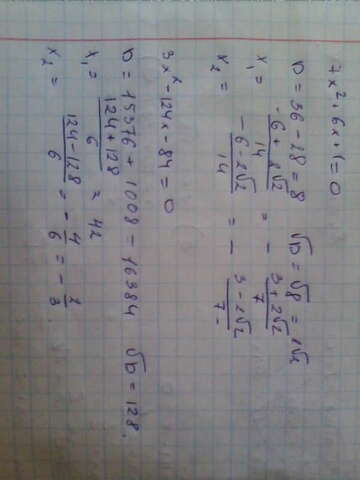 7x² + 6x + 1 = 0
D = 36 - 28 = 8 √D = √8 = 2√2
x₁ = (-6 + 2√2)/14 = - (3 + 2√2)/7
x₂ = (-6 - 2√2)/14 = - (3 - 2√2)/7
3x² - 124x - 84 = 0
D = 15376 + 1008 = 16384 √D = 128.
x₁ = (124 + 128)/6 = 42
x₂ = (124 - 128)/6 = - 4/6 = - 2/3